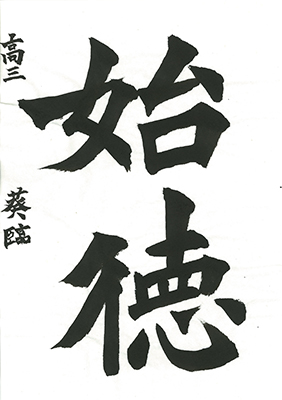 始徳
高三 葵臨